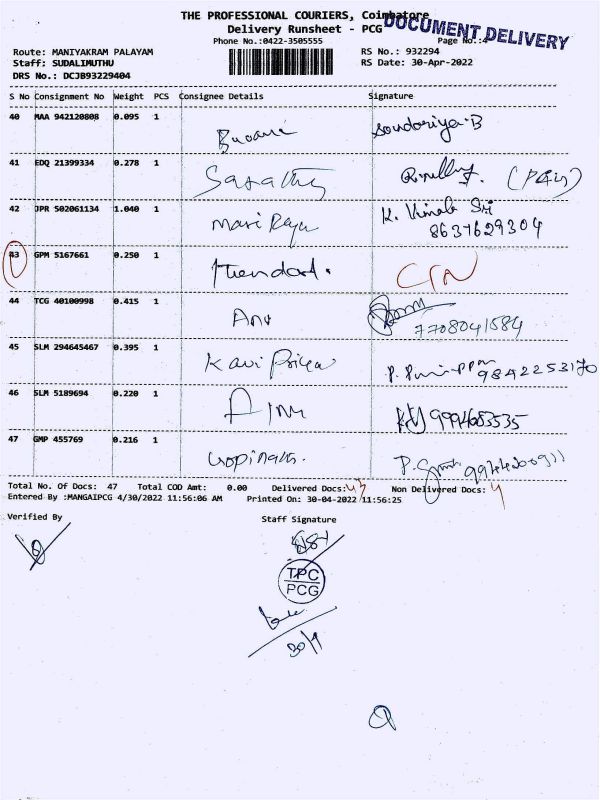 THE PROFESSIONAL COURIERS, Coimbatore
DOCUMENT DELIVERY
Delivery Runsheet - PCG
Phone No.:0422-3505555
Page No.:4
Route: MANIYAKRAM PALAYAM
RS No.: 932294
Staff: SUDALIMUTHU
RS Date: 30-Apr-2022
DRS No.: DCJB93229404
S No Consignment No Weight PCS Consignee Details Signature
40 MAA 942120808 0.095 1 Buvani Soudoriya.B
41 EDQ 21399334 0.278 1 Sarathy
42 JPR 502061134 1.040 1 Mari Raju K. Vimala Sri
8637629304
43 GPM 5167661 0.250 1
44 TCG 40100998 0.415 1 Anu
7708041584
45 SLM 294645467 0.395 1 Kavi Priya
9842253170
46 SLM 5189694 0.220 1 9994683535
47 GMP 455769 0.216 1 Gopinath.
Total No. Of Docs: 47 Total COD Amt: 0.00 Delivered Docs: 43 Non Delivered Docs: 4
Entered By :MANGAIPCG 4/30/2022 11:56:06 AM Printed On: 30-04-2022 11:56:25
Verified By
Staff Signature
TPC
PCG